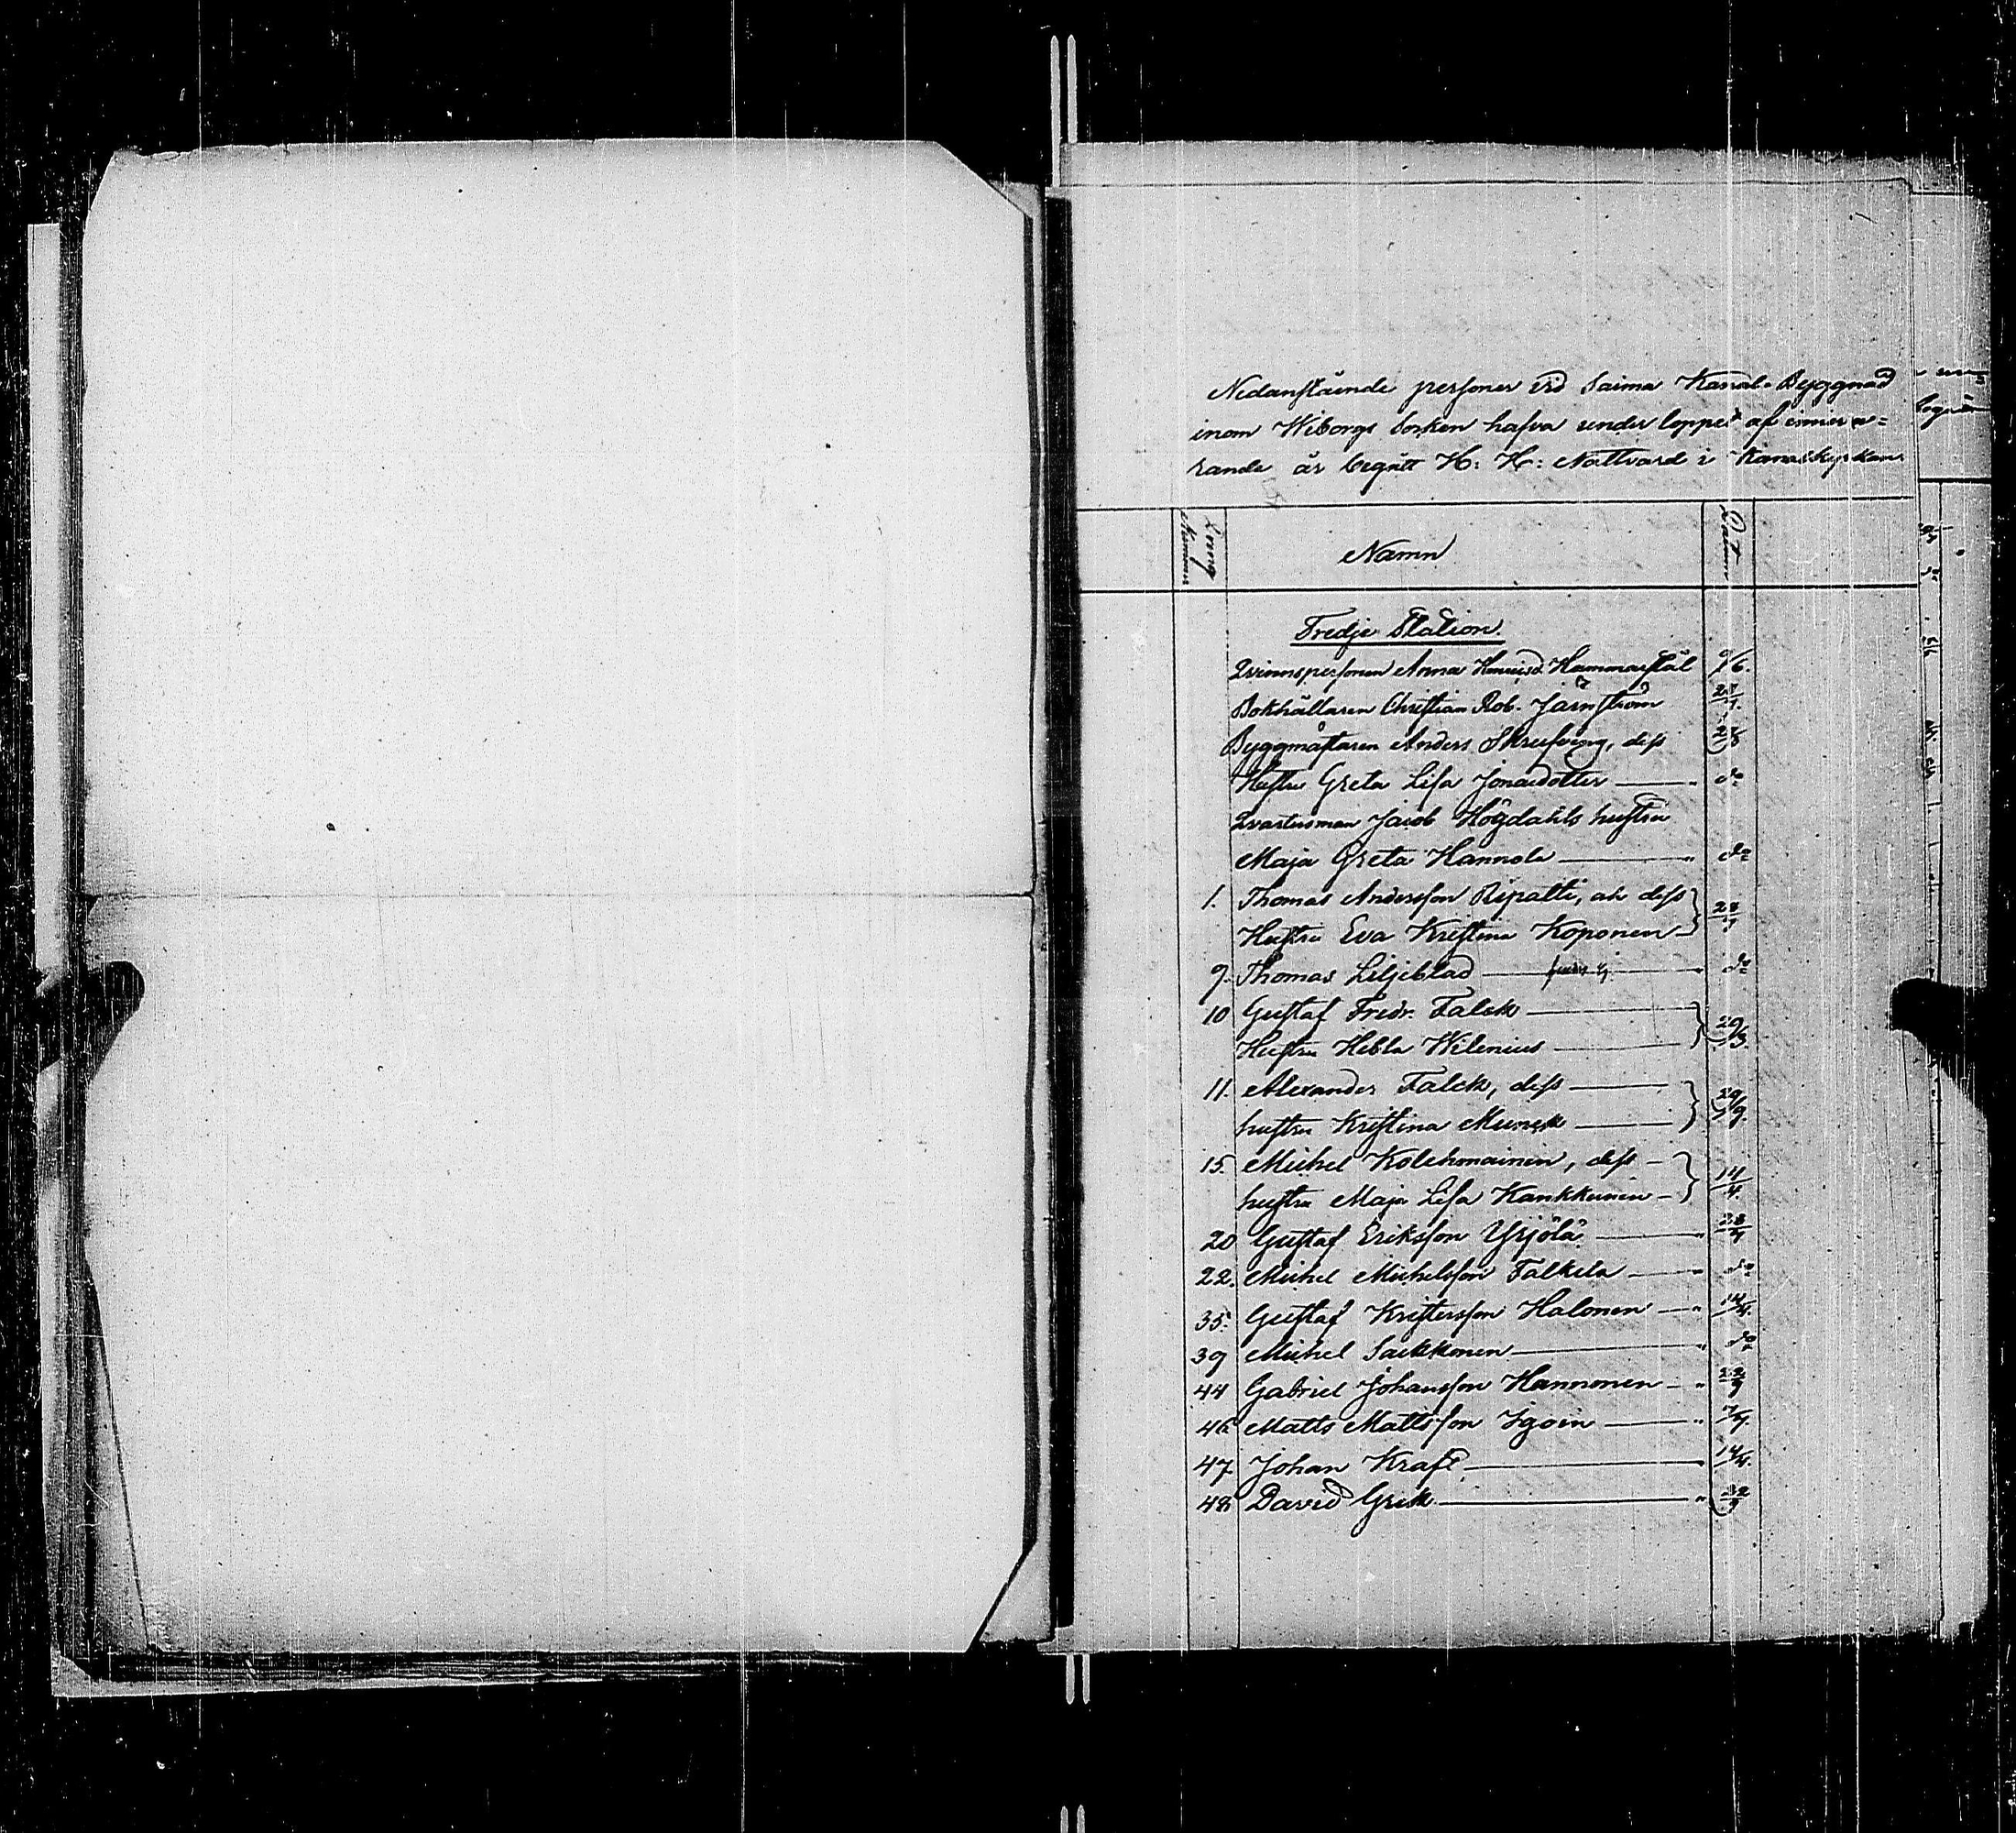 Nedanstående personer vid Saima Kanal-Byggnad
inom Wiborgs Socken hafva under loppet af innieva=
rande år begått H: H: Nattvard i Kanalkyrkan
Namn
Datum
Fredje Station.
Qvinnspersonen Anna Hammarstål 9/6.
Bokhållaren Christian Rob. Järnström
Byggmästaren Anders Skrufving, dess
Hustru Greta Lisa Jonaedotter — do
Qvartersman Jacob Högdahls hustru
Maja Greta Hannola — do
1. Thomas Andersson Ripatti, och dess
Hustru Eva Kristina Koponen
9. Thomas Liljeblad — do
10 Gustaf Fredr. Falck —
Hustru Hebla Wilenius — 29/3.
11. Alexander Falck, dess —
hustru Kristina Munck — 29/9.
15. Michel Kolehmainen, dess —
hustru Maja Lisa Kankkunen — 14/4.
20 Gustaf Eriksson Yrjölä —
22. Michel Michelsson Falkela — do
35. Gustaf Kristersson Halonen — 14/4.
39 Michel Saikkonen — do
44 Gabriel Johansson Hannonen —
46 Matts Mattsson Igoin —
47. Johan Kraft — 14/4.
48 David Grek —